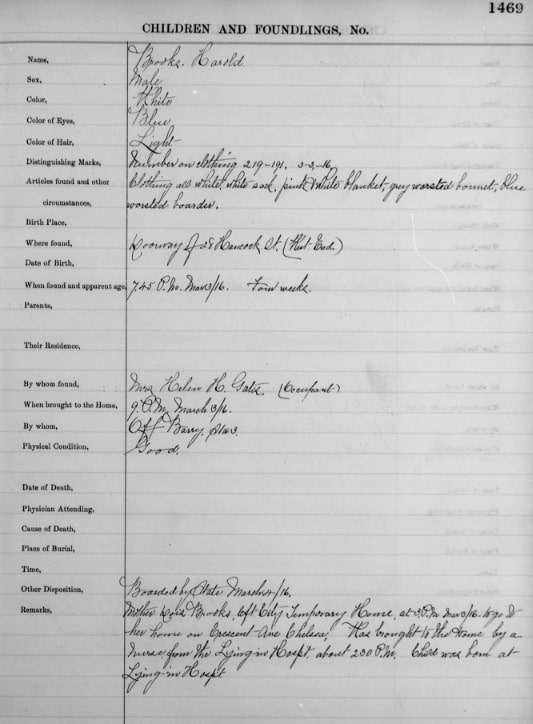 1469
CHILDREN AND FOUNDLINGS, No.
Name, Brooks. Harold.
Sex, Male
Color, White
Color of Eyes, Blue
Color of Hair, Light
Distinguishing Marks, Number on clothing 219-191.
Articles found and other Clothing all white, white sack, pink & white blanket, grey worsted bonnet, blue
circumstances, worsted
Birth Place,
Where found, Doorway of 28 Hancock St. (West End.)
Date of Birth,
When found and apparent age, 7.45 P.M. Mar 3/16. Four weeks.
Parents,
Their Residence,
By whom found, Mrs Helen H. Gates. (Occupant)
When brought to the Home, 9. P.M. March 3/16.
By whom, Off Barry. Sta 3.
Physical Condition, Good.
Date of Death,
Physician Attending,
Cause of Death,
Place of Burial,
Time,
Other Disposition, Boarded by State March 4/16.
Remarks, Mother Brooks, left City Temporary Home, at 3. P.M. Mar 3/16. to go to
her home on Crescent Ave Chelsea. Was brought to the Home by a
Nurse from the Lying-in Hospt. about 2.30 P.M. Child was born at
Lying-in Hospt